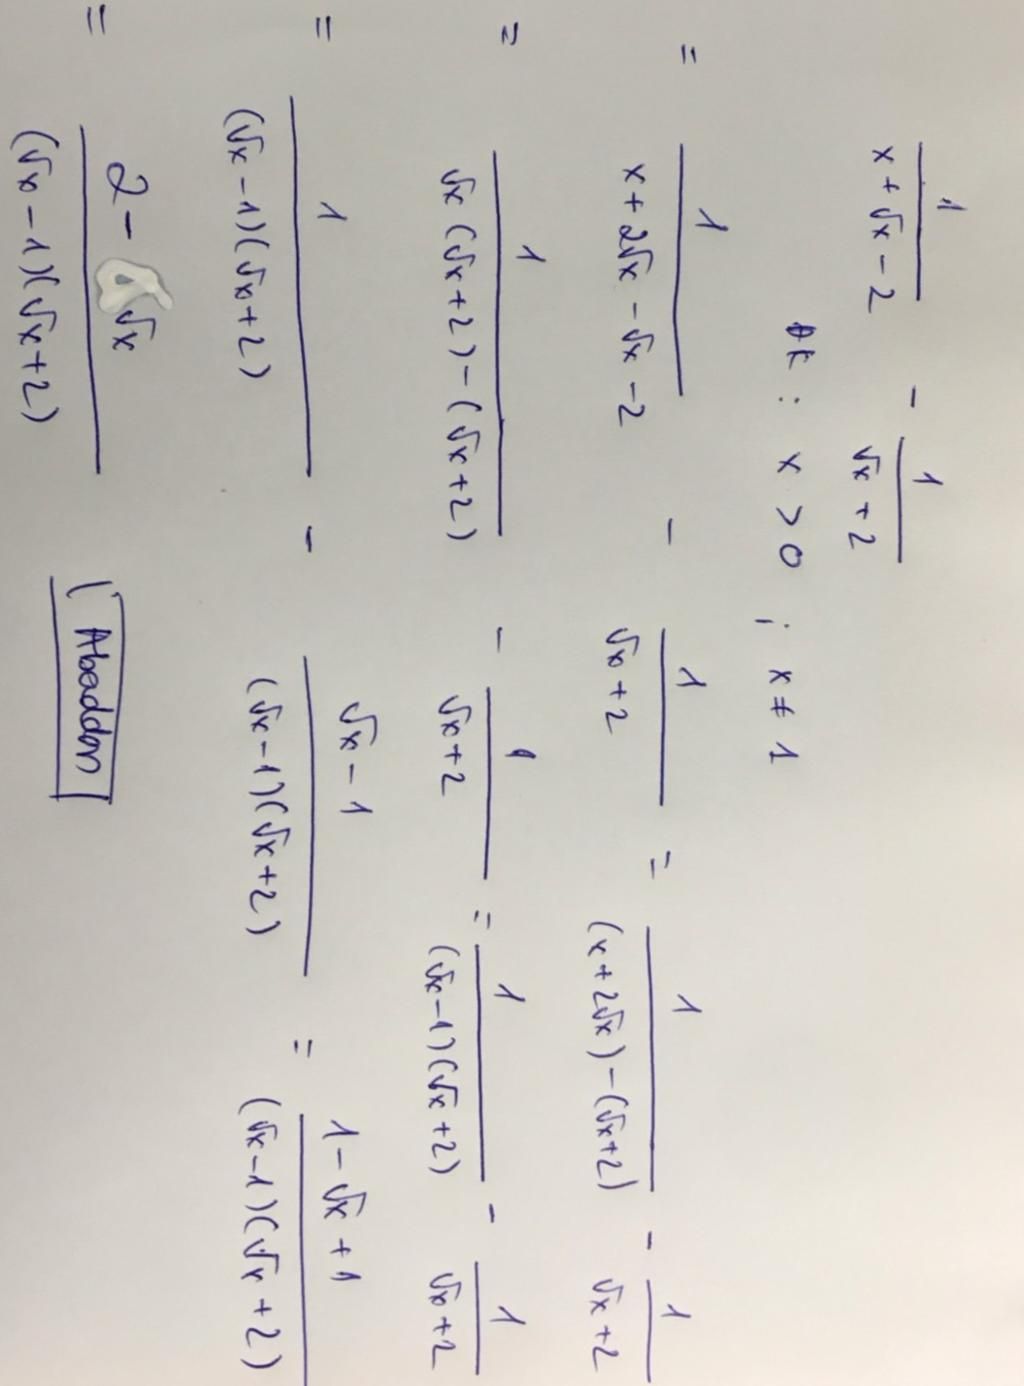 1/(x + √x - 2) - 1/(√x + 2)
đk : x > 0 ; x ≠ 1
= 1/(x + 2√x - √x - 2) - 1/(√x + 2) = 1/((x + 2√x) - (√x + 2)) - 1/(√x + 2)
= 1/(√x (√x + 2) - (√x + 2)) - 1/(√x + 2) = 1/((√x - 1)(√x + 2)) - 1/(√x + 2)
= 1/((√x - 1)(√x + 2)) - (√x - 1)/((√x - 1)(√x + 2)) = (1 - √x + 1)/((√x - 1)(√x + 2))
= (2 - √x)/((√x - 1)(√x + 2))
Abaddon